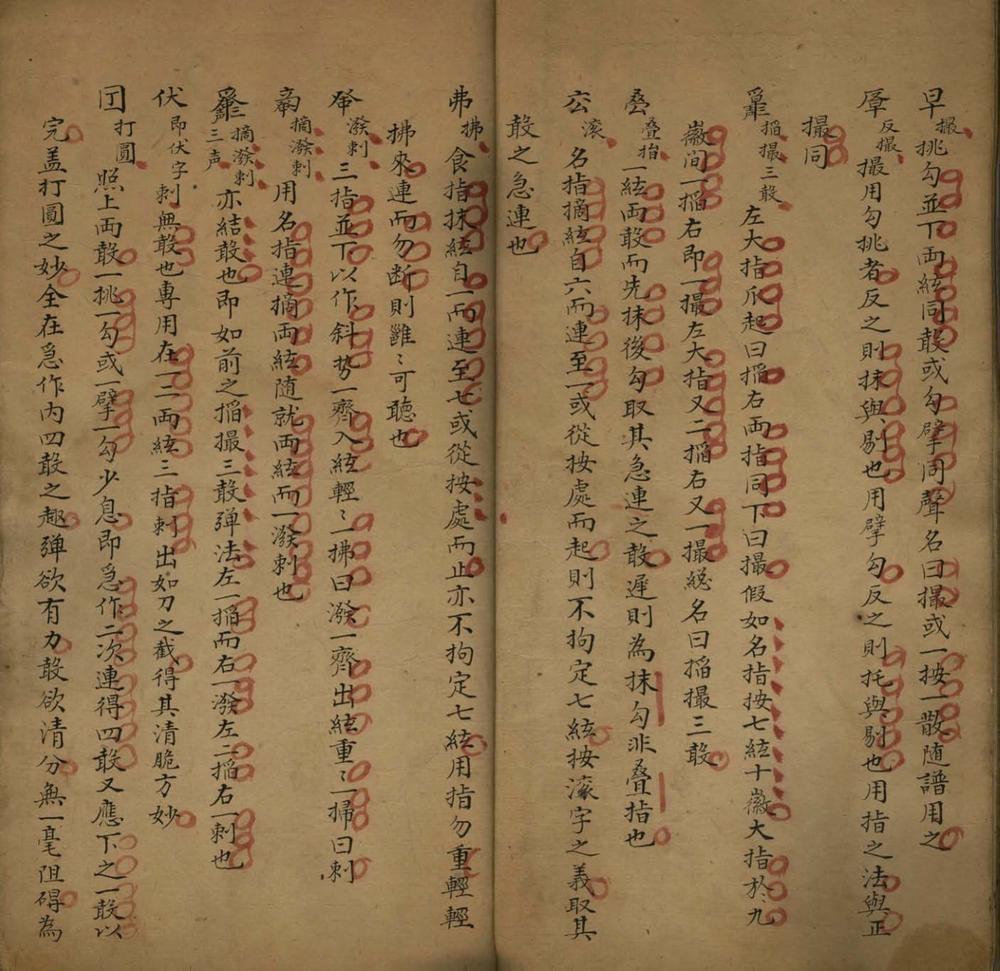 早 撮 挑勾並下両絃同敲或勾擘同聲名曰撮或一按一散随譜用之
反撮 撮用勾挑者反之則抹與剔也用擘勾反之則托與剔也用指之法與正
撮同
搯撮三敲 左大指爪起曰搯右両指同下曰撮假如名指按七絃十徽大指於九
徽间一搯右即一撮左大指又二搯右又一撮總名曰搯撮三敲
叠指 一絃両敲而先抹後勾取其急連之敲遲則為抹勾非叠指也
厷 滚 名指摘絃自六而連至一或從按處而起則不拘定七絃按滚字之義取其
敲之急連也
弗 拂 食指抹絃自一而連至七或從按處而止亦不拘定七絃用指勿重輕輕
拂來連而勿断則雝〻可聽也
潑剌 三指並下以作斜势一齊入絃輕〻一拂曰潑一齊出絃重〻一掃曰剌
摘潑剌 用名指連摘両絃随就両絃而一潑剌也
摘潑剌三声 亦結敲也即如前之搯撮三敲弹法左一搯而右一潑左二搯右一剌也
伏 即伏字 剌無敲也專用在一二両絃三指剌出如刀之截得其清脆方妙
打圓 照上両敲一挑一勾或一擘一勾少息即急作二次連得四敲又應下之一敲以
完盖打圓之妙全在急作内四敲之趣弹欲有力敲欲清分無一毫阻碍為